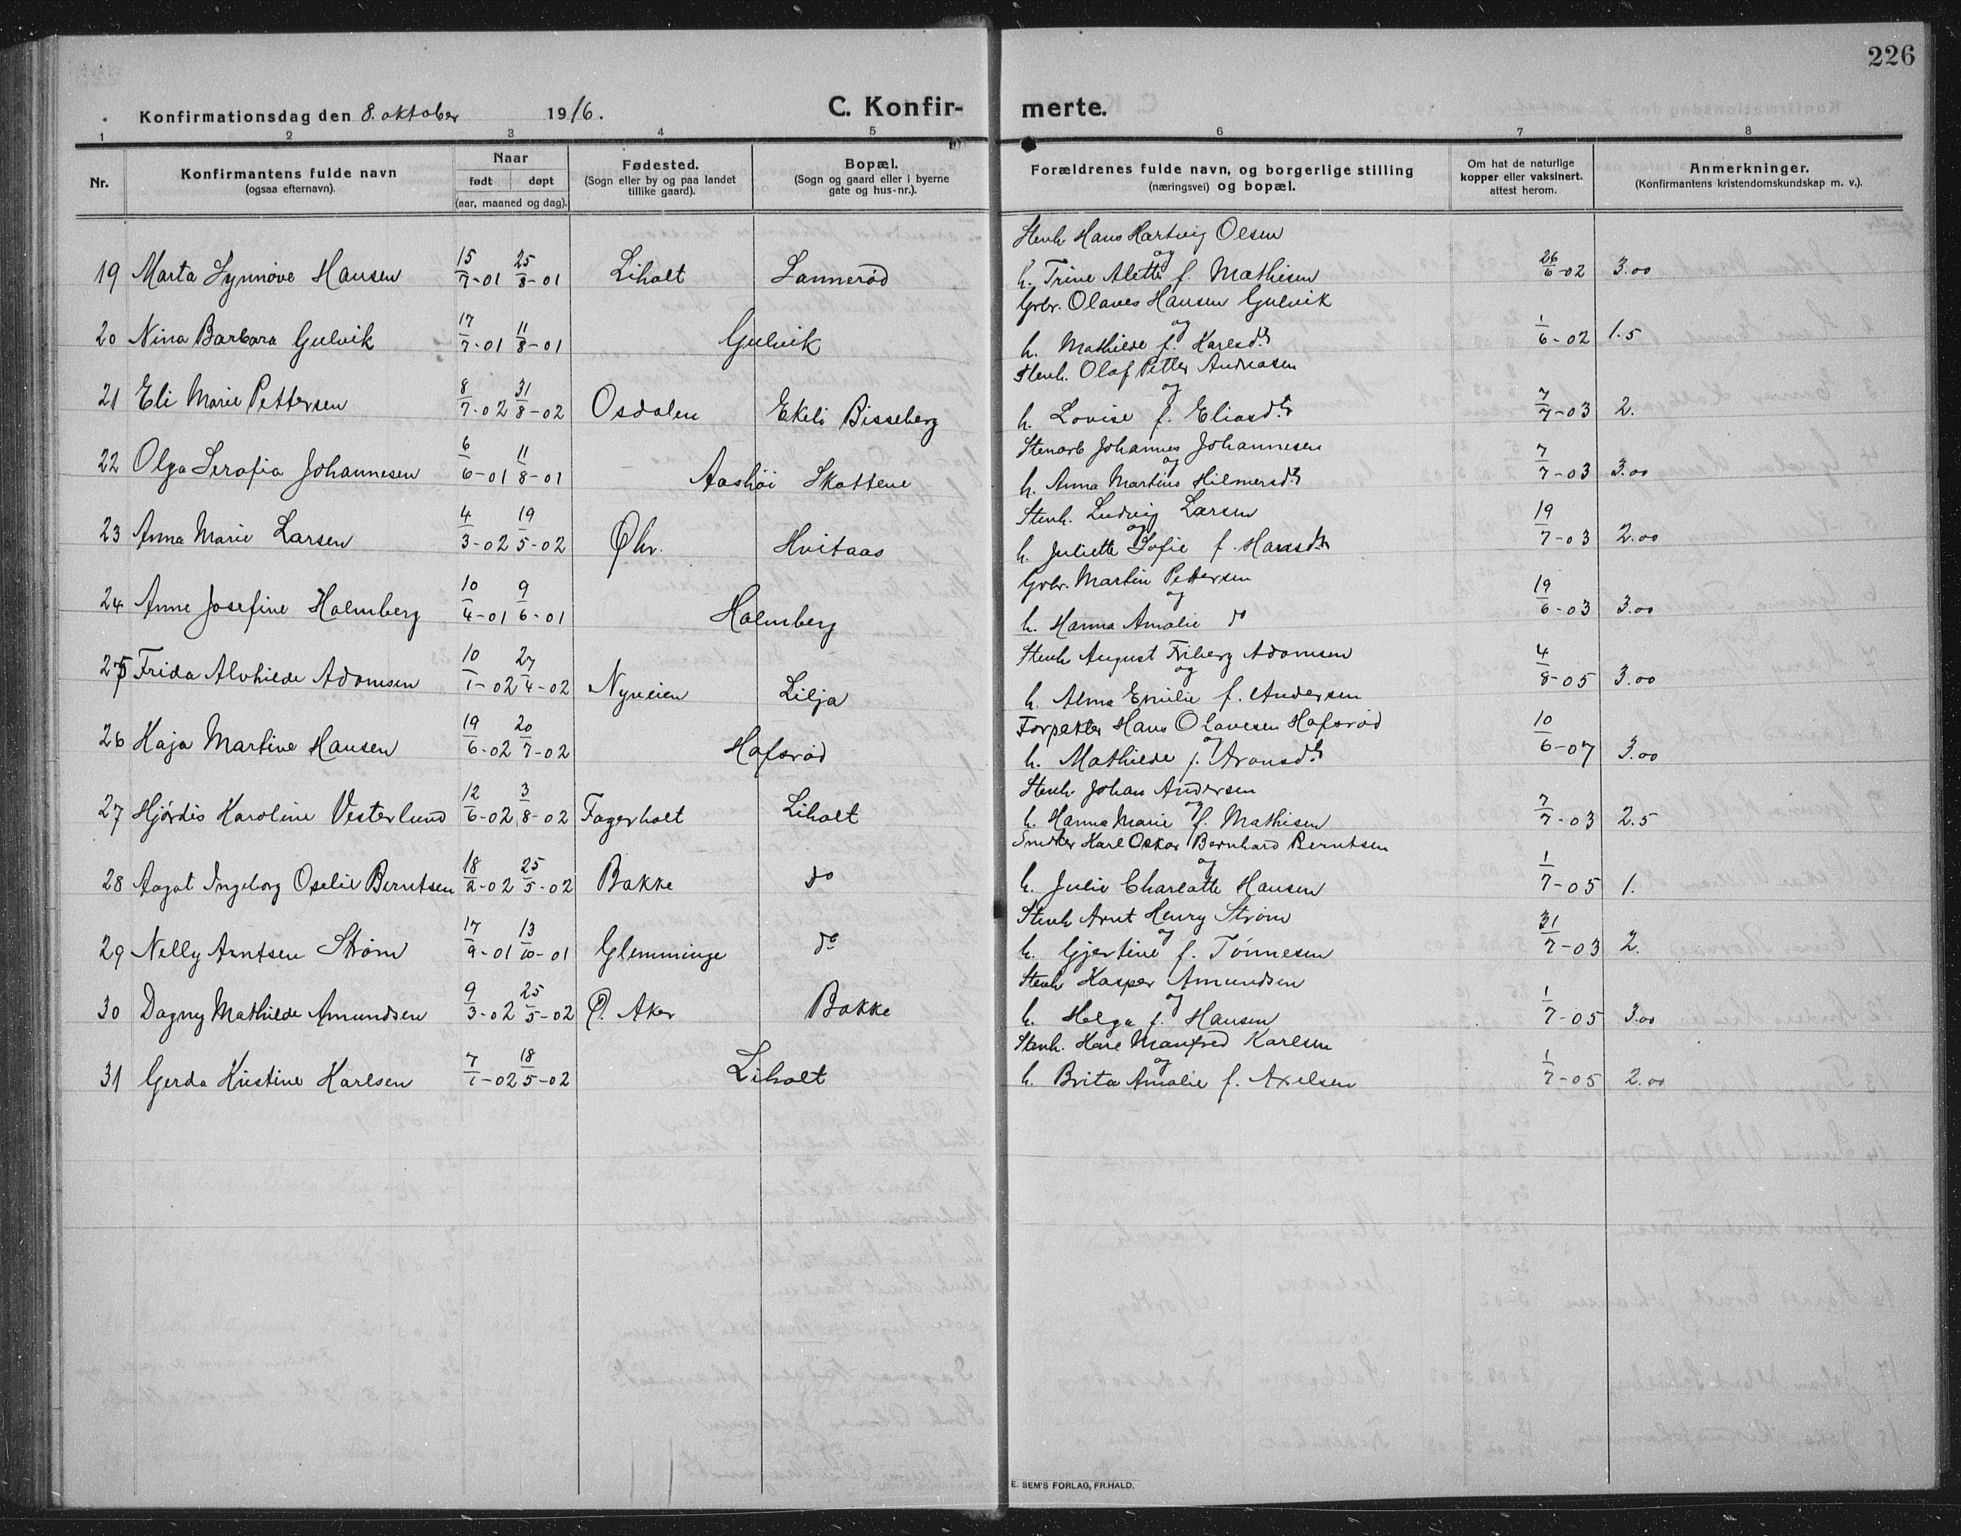 226
Konfirmationsdag den 8. oktober 1916. C. Konfir- merte.
1 2 3 4 5 6 7 8
Nr. Konfirmantens fulde navn (ogsaa efternavn). Naar født døpt (aar, maaned og dag). Fødested. (Sogn eller by og paa landet tillike gaard). Bopæl. (Sogn og gaard eller i byerne gate og hus-nr.). Forældrenes fulde navn, og borgerlige stilling (næringsvei) og bopæl. Om hat de naturlige kopper eller vaksinert. attest herom. Anmerkninger. (Konfirmantens kristendomskundskap m. v.).
Stenh Hans Hartvig Olsen
og
19 Marta Synnøve Hansen 15/7-01 25/8-01 Liholt Sannerød h. Trine Alette f. Mathisen 26/6-02 3.00
Grbr. Olaves Hansen Gulvik
og
20 Nina Barbara Gulvik 17/7-01 11/8-01 Gulvik h. Mathilde f. Karlsdtr 1/6-02 1.5
Stenh. Olaf Petter Andreasen
og
21 Eli Marie Pettersen 8/7-02 31/8-02 Osdalen Ekeli Bisseberg h. Lovise f. Eliasdtr 7/7-03 2.
Stenarb Johannes Johannesen
og
22 Olga Serafia Johannesen 6/6-01 11/8-01 Aashøi Skottene h. Anna Martine Hilmersdtr 7/7-03 3.00
Stenh. Ludvig Larsen
og
23 Anna Marie Larsen 4/3-02 19/5-02 Øhr. Hvitaas h. Juliette Sofie f. Hansdtr 19/7-03 2.00
Grbr. Martin Pettersen
og
24 Anne Josefine Holmberg 10/4-01 9/6-01 Holmberg h. Hanna Amalie do 19/6-03 3.00
Stenh August Friberg Adamsen
og
25 Frida Alvhilde Adamsen 10/1-02 27/4-02 Nyveien Lilja h. Alma Emilie f. Andersen 4/8-05 3.00
Forpakter Hans Olavesen Hafsrød
og
26 Kaja Martine Hansen 19/6-02 20/7-02 Hafsrød h. Mathilde f. Aronsdtr 10/6-07 3.00
Stenh Johan Andersen
og
27 Hjørdis Karoline Vesterlund 12/6-02 3/8-02 Fagerholt Liholt h. Hanna Marie f. Mathisen 7/7-03 2.5
Snedker Karl Oskar Bernhard Berntsen
og
28 Aagot Ingeborg Oselie Berntsen 18/2-02 25/5-02 Bakke do h. Julie Charlotte Hansen 1/7-05 1.
Stenh Arnt Henry Strøm
og
29 Nelly Arntsen Strøm 17/9-01 13/10-01 Glemminge do h. Gjertine f. Tønnesen 31/7-03 2.
Stenh Kasper Amundsen
og
30 Dagny Mathilde Amundsen 9/3-02 25/5-02 Ø. Aker Bakke h. Helga f. Hansen 1/7-05 3.00
Stenh. Karl Manfred Karlsen
og
31 Gerda Kristine Karlsen 7/1-02 18/5-02 Liholt h. Brita Amalie f. Axelsen 1/7-05 2.00
E. SEM'S FORLAG, FR.HALD.